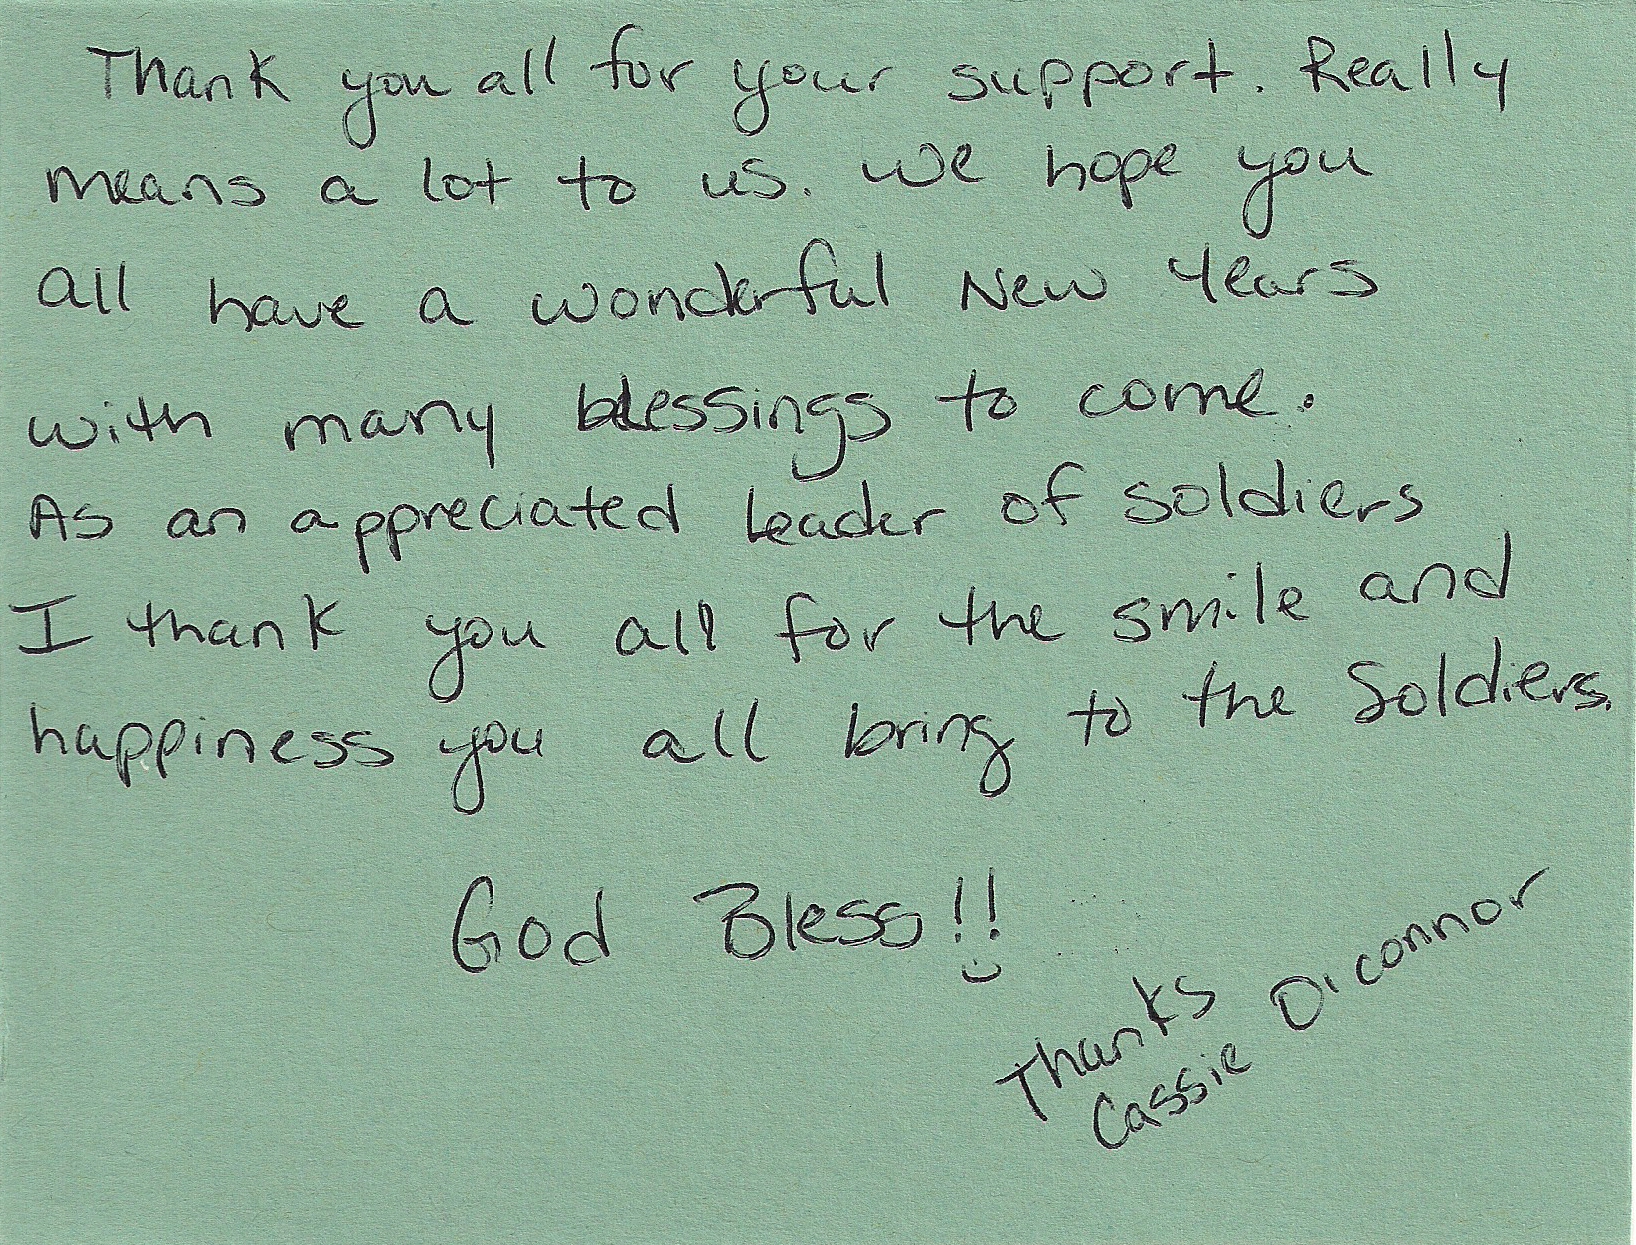 Thank you all for your support. Really
means a lot to us. We hope you
all have a wonderful New Years
with many blessings to come.
As an appreciated leader of soldiers
I thank you all for the smile and
happiness you all bring to the Soldiers.
God Bless!!
Thanks
Cassie O'connor